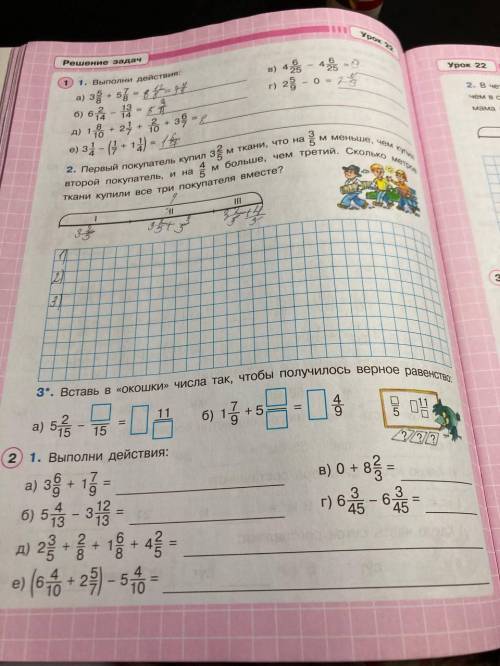 Решение задач
Урок 22
Урок 22
1 1. Выполни действия:
а) 3 5/8 + 5 7/8 =
б) 6 2/14 − 13/14 =
д) 1 8/10 + 2 1/7 + 2/10 + 3 6/7 =
е) 3 1/4 − (1/7 + 1 1/4) =
в) 4 6/25 − 4 6/25 = 0
г) 2 5/9 − 0 = 2 5/9
2. Первый покупатель купил 3 2/5 м ткани, что на 3/5 м меньше, чем купил
второй покупатель, и на 4/5 м больше, чем третий. Сколько метров
ткани купили все три покупателя вместе?
?
I II III
1)
2)
3)
3*. Вставь в «окошки» числа так, чтобы получилось верное равенство:
а) 5 2/15 − □/15 = □ 11/□
б) 1 7/9 + 5 □/□ = □ 4/9
□/5 □ 11/□
? ? ?
2 1. Выполни действия:
а) 3 6/9 + 1 7/9 =
б) 5 4/13 − 3 12/13 =
д) 2 3/5 + 2/8 + 1 6/8 + 4 2/5 =
е) (6 4/10 + 2 5/7) − 5 4/10 =
в) 0 + 8 2/3 =
г) 6 3/45 − 6 3/45 =
2. В че
чем в с
мама
3